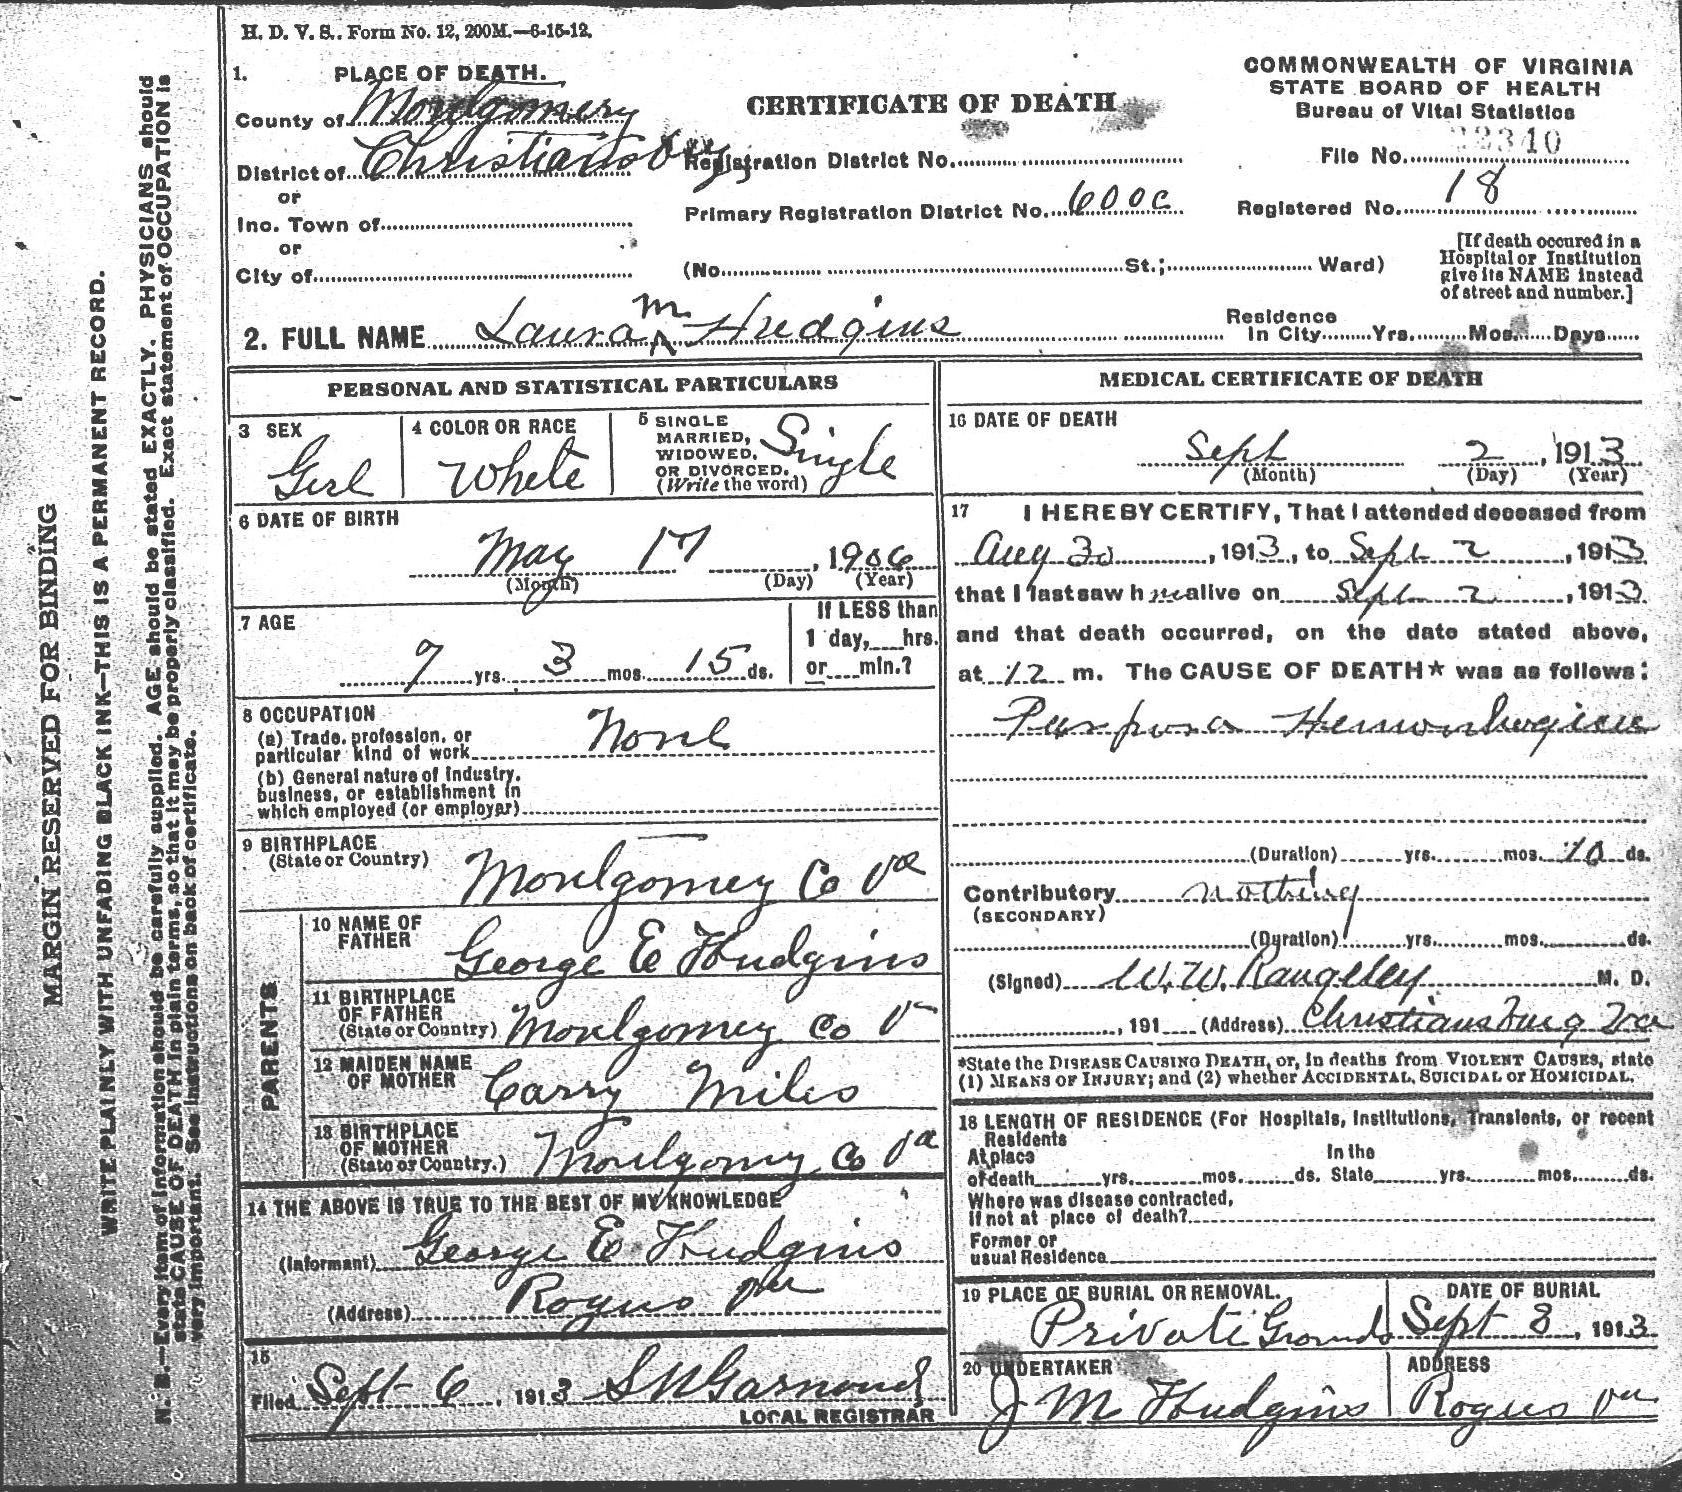 H. D. V. S.. Form No. 12, 200M.—6-15-12.
1. PLACE OF DEATH.
County of Montgomery
District of Christiansburg
or
Inc. Town of
or
City of
CERTIFICATE OF DEATH
Registration District No.
Primary Registration District No. 600c
(No. St.; Ward)
COMMONWEALTH OF VIRGINIA
STATE BOARD OF HEALTH
Bureau of Vital Statistics
File No. 22340
Registered No. 18
[If death occured in a
Hospital or Institution
give its NAME instead
of street and number.]
2. FULL NAME Laura M Hudgins
Residence
In City Yrs. Mos. Days
PERSONAL AND STATISTICAL PARTICULARS
3 SEX
Girl
4 COLOR OR RACE
White
5 SINGLE
MARRIED,
WIDOWED,
OR DIVORCED.
(Write the word)
Single
6 DATE OF BIRTH
May 17, 1906
(Month) (Day) (Year)
7 AGE
7 yrs. 3 mos. 15 ds.
If LESS than
1 day, hrs.
or min.?
8 OCCUPATION
(a) Trade, profession, or
particular kind of work None
(b) General nature of Industry,
business, or establishment in
which employed (or employer)
9 BIRTHPLACE
(State or Country)
Montgomey Co Va
PARENTS
10 NAME OF
FATHER
George E Hudgins
11 BIRTHPLACE
OF FATHER
(State or Country) Montgomey Co V
12 MAIDEN NAME
OF MOTHER
Carry Miles
13 BIRTHPLACE
OF MOTHER
(State or Country.) Montgomy Co Va
14 THE ABOVE IS TRUE TO THE BEST OF MY KNOWLEDGE
(Informant) George E Hudgins
(Address) Rogus Va
15
Filed Sept 6, 1913
LOCAL REGISTRAR
MEDICAL CERTIFICATE OF DEATH
16 DATE OF DEATH
Sept 2, 1913
(Month) (Day) (Year)
17 I HEREBY CERTIFY, That I attended deceased from
Aug 30, 1913, to Sept 2, 1913
that I last saw h alive on Sept 2, 1913
and that death occurred, on the date stated above,
at 12 m. The CAUSE OF DEATH* was as follows:
Purpura
(Duration) yrs. mos. 10 ds.
Contributory nothing
(SECONDARY)
(Duration) yrs. mos. ds.
(Signed) W. W. Rangeley M. D.
, 191 (Address) Christiansburg Va
*State the DISEASE CAUSING DEATH, or, in deaths from VIOLENT CAUSES, state
(1) MEANS OF INJURY; and (2) whether ACCIDENTAL, SUICIDAL or HOMICIDAL.
18 LENGTH OF RESIDENCE (For Hospitals, Institutions, Transients, or recent
Residents
At place
of death yrs. mos. ds.
In the
State yrs. mos. ds.
Where was disease contracted,
if not at place of death?
Former or
usual Residence
19 PLACE OF BURIAL OR REMOVAL.
Private Grounds
DATE OF BURIAL
Sept 3, 1913
20 UNDERTAKER
J M Hudgins
ADDRESS
Rogus Va
MARGIN RESERVED FOR BINDING
WRITE PLAINLY WITH UNFADING BLACK INK—THIS IS A PERMANENT RECORD.
N. B.—Every item of information should be carefully supplied. AGE should be stated EXACTLY. PHYSICIANS should
state CAUSE OF DEATH in plain terms, so that it may be properly classified. Exact statement of OCCUPATION is
very important. See instructions on back of certificate.